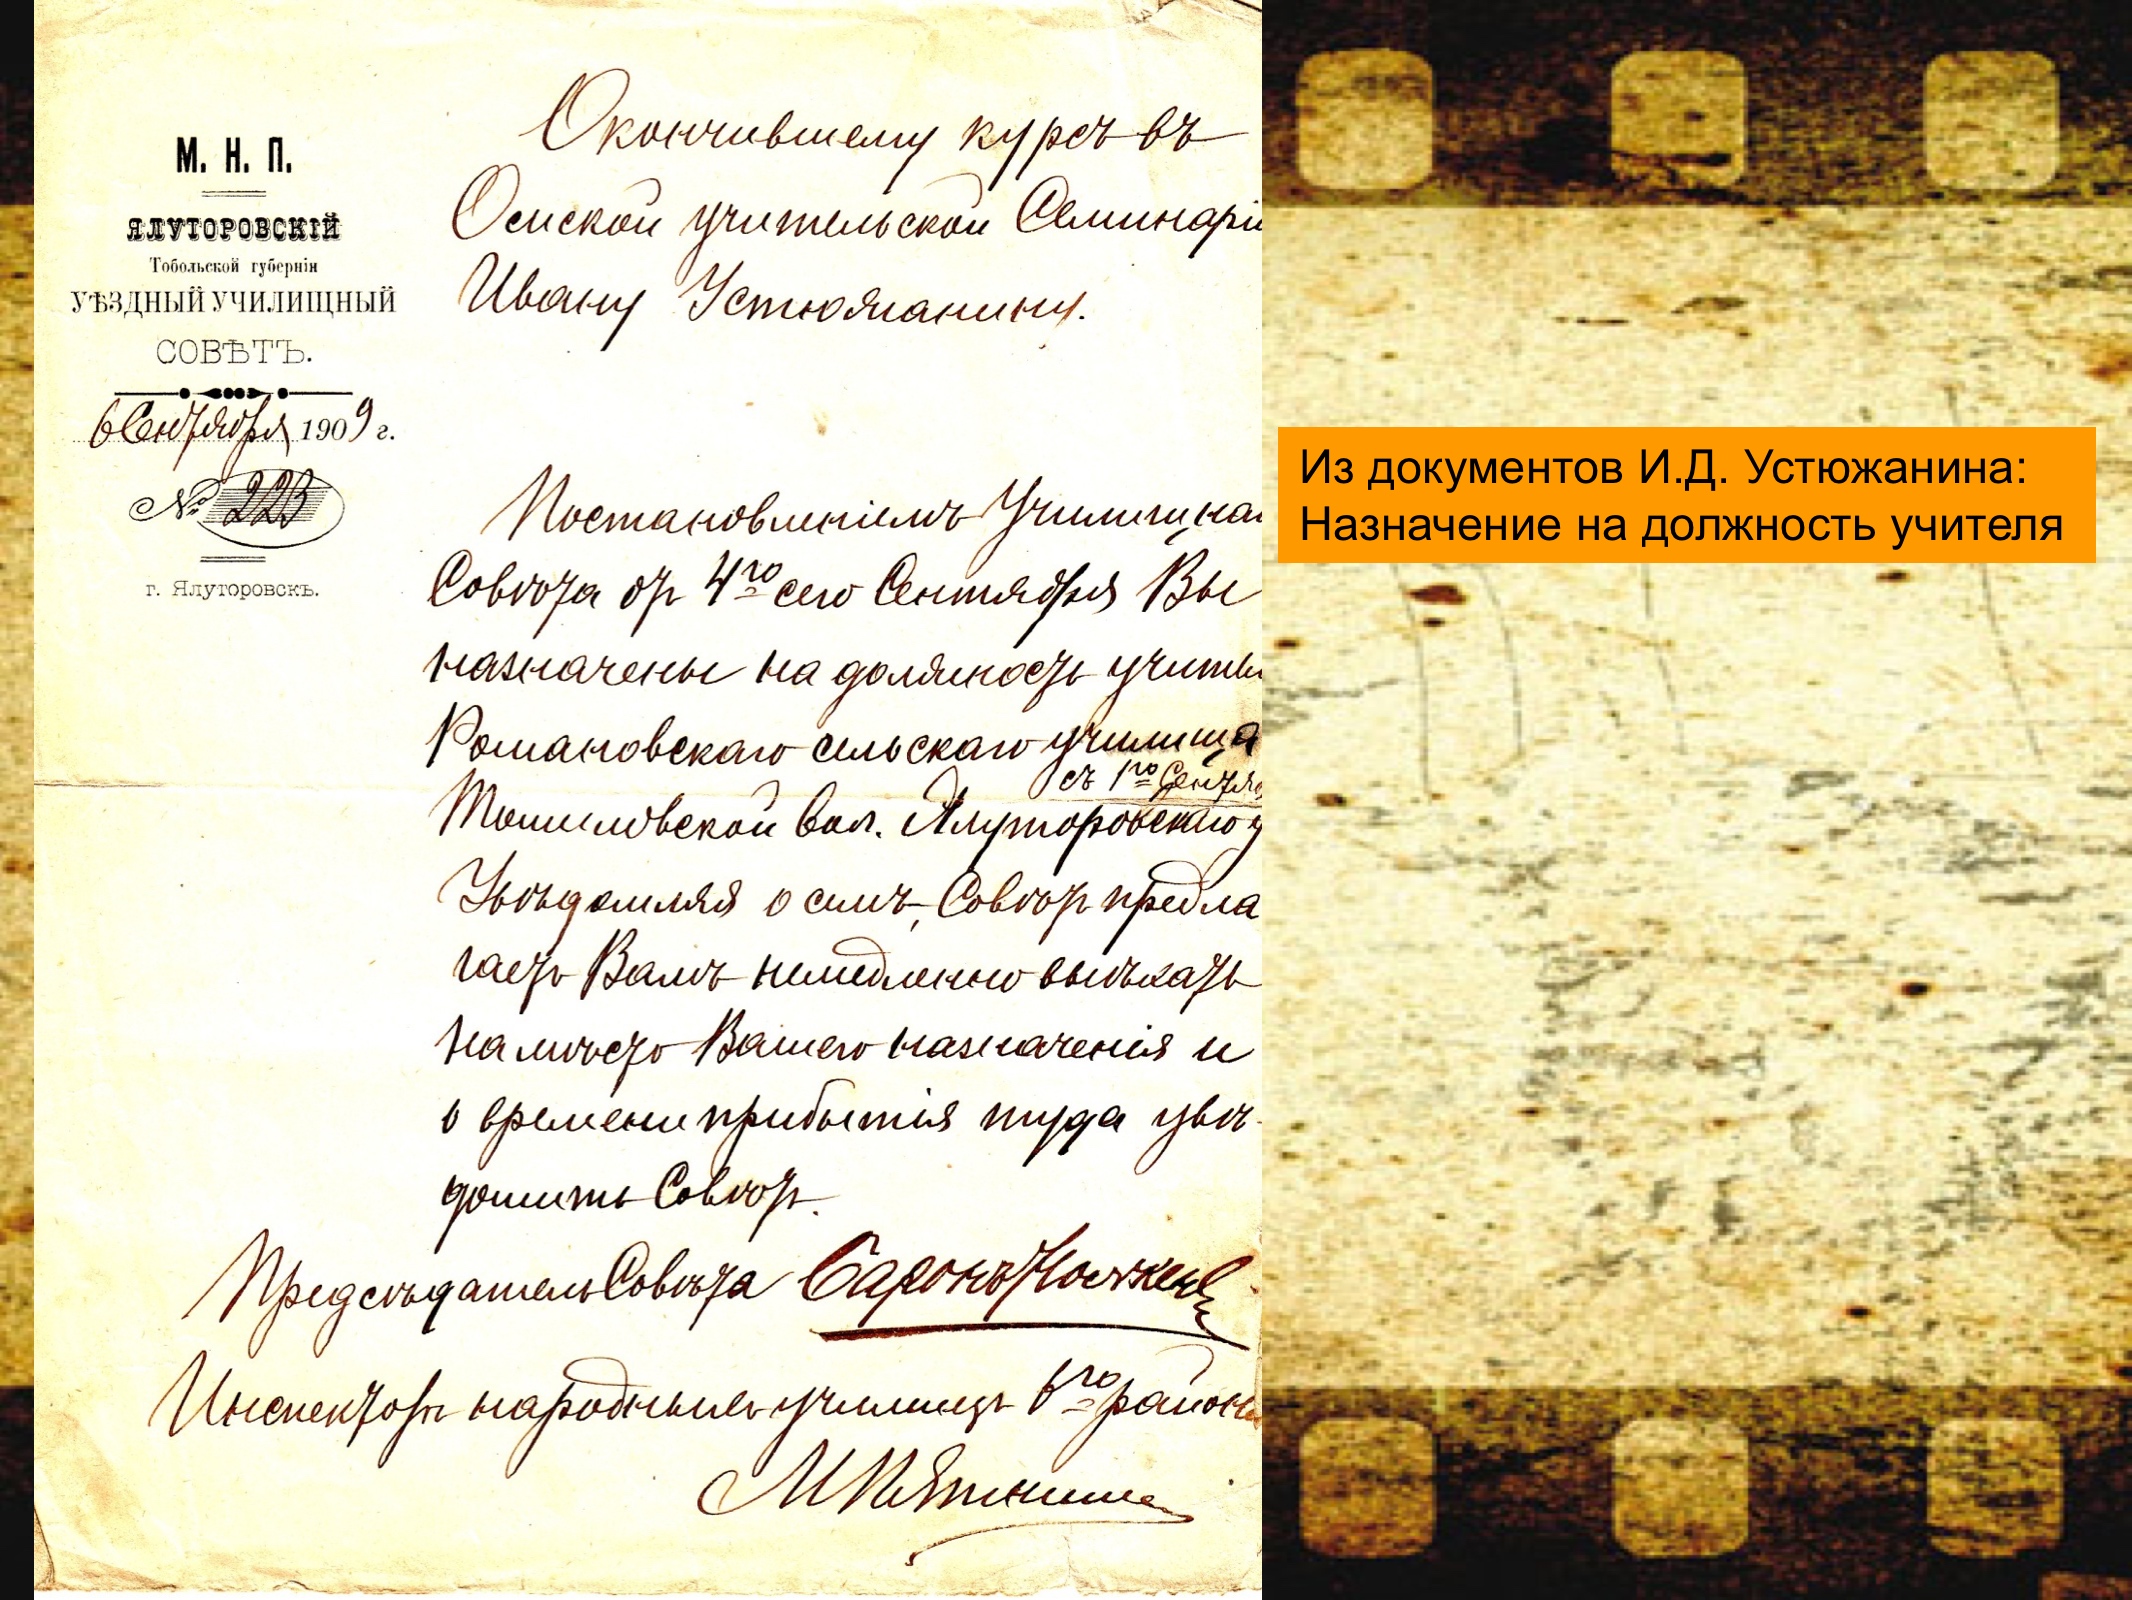 М. Н. П.
ЯЛУТОРОВСКІЙ
Тобольской губерніи
УѢЗДНЫЙ УЧИЛИЩНЫЙ
СОВѢТЪ.
6 Сентября 1909 г.
№ 223
г. Ялуторовскъ.
Окончившему курсъ въ
Осиской учительской Семинаріи
Ивану Устюжанину.
Постановленіемъ Училищна
Совѣта от 4го сего Сентября Вы
назначены на должность учител
Романовскаго сельскаго училища
съ 1го Сентя
Томиловской вол. Ялуторовскаго у
Увѣдомляя о семъ, Совѣт предла
гает Вамъ немедленно выѣхать
на мѣсто Вашего назначенія и
о времени прибытія туда увѣ-
домить Совѣт.
Предсѣдатель Совѣта Баронъ
Инспектор народных училищ 6го район
М
Из документов И.Д. Устюжанина:
Назначение на должность учителя